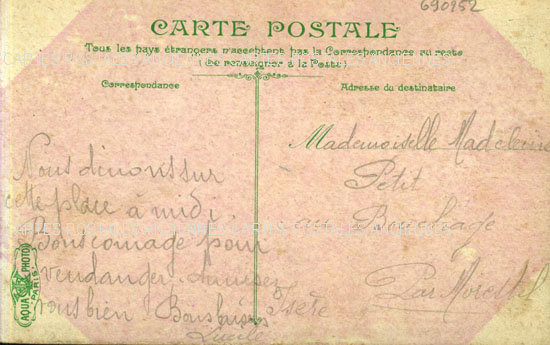 690952
CARTE POSTALE
Tous les pays étrangers n'acceptent pas la Correspondance au recto
(Se renseigner à la Poste)
Correspondance
Adresse du destinataire
Nous dinons sur
cette place à midi
Bon courage pour
vendanger
vous bien Bons baisers
Lucile
Mademoiselle Madeleine
Petit
au Bouchage
Par Morestel
Isère
AQUA PHOTO
PARIS